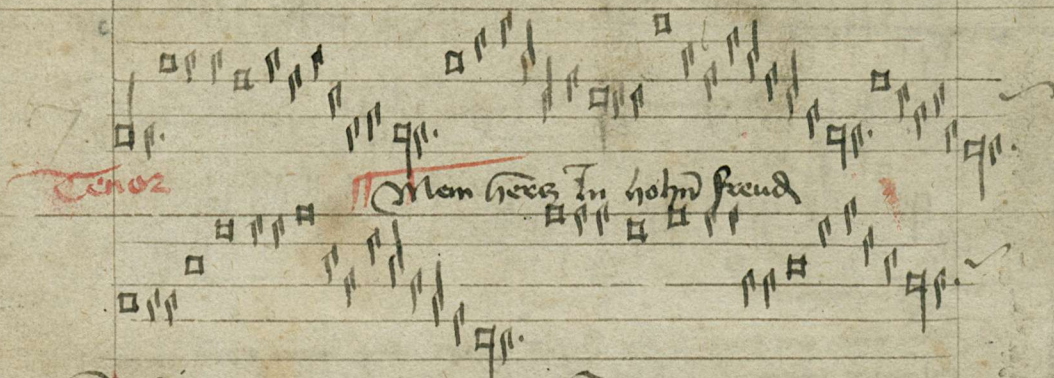 Tenor
Mein hercz In hohn̄ freud